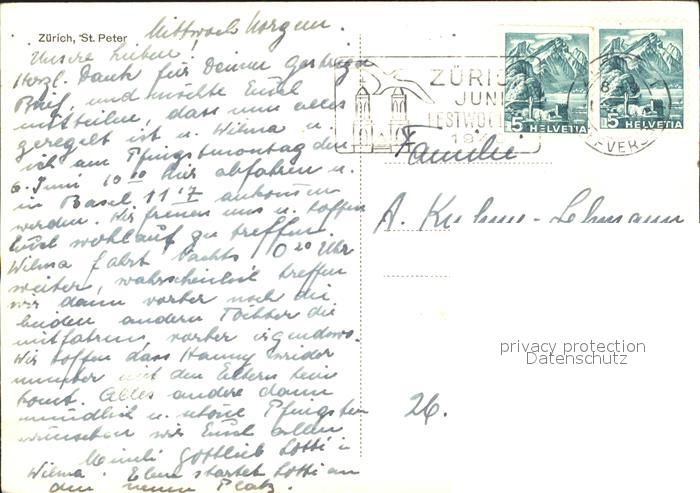 Zürich, St. Peter
Mittwoch Morgen.
Unsere Lieben!
Herzl. Dank für Deinen gestrigen
Brief, und möchte Euch
mitteilen, dass nun alles
geregelt ist u. Wilma u.
ich am Pfingstmontag den
6. Juni 10 10 hier abfahren u.
in Basel 11 17 ankommen
werden. Wir freuen uns u. hoffen
Euch wohlauf zu treffen.
Wilma fährt Nachts 0 20 Uhr
weiter, wahrscheinlich treffen
wir dann vorher noch die
beiden andern Töchter die
mitfahren, vorher irgendwo.
Wir hoffen dass Hanny wieder
munter mit den Eltern heim
kommt. Alles andere dann
mündlich u. schöne Pfingsten
wünschen wir Euch allen
Gottlieb Lotti
Wilma. startet Lotti an
den neuen Platz.
ZÜRICH
JUNI
FESTWOCHEN
5 HELVETIA
5 HELVETIA
Familie
A. -Lehmann
privacy protection
Datenschutz
26.